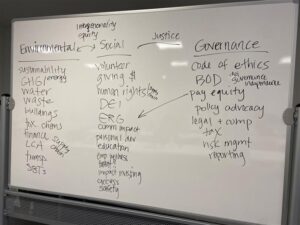 intersectionality
equity
Environmental
Social
Justice
Governance
sustainability
GHG/energy
water
waste
buildings
tox chems
finance
supply chain
LCA
transp
SBTs
volunteer
giving $
human rights
DEI
ERG
comm impact
personal dev
education
emp
impact investing
access
safety
code of ethics
BOD
pay equity
policy advocacy
legal + comp
tax
risk mgmt
reporting